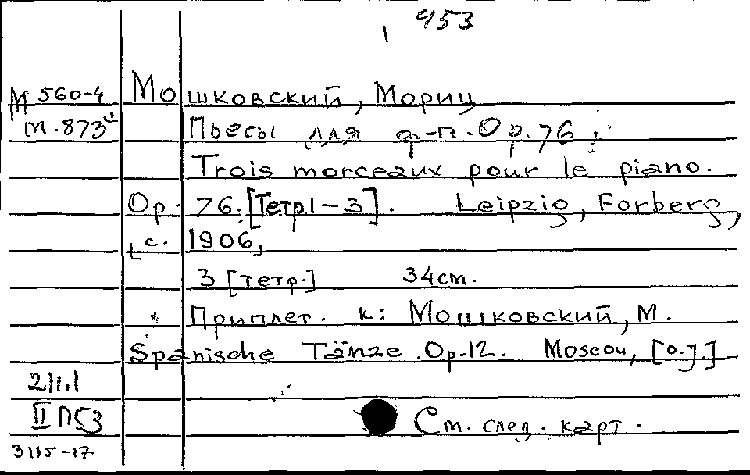 453
М 560-4 Мошковский, Мориц
т. 873 Пьесы для ф-п. Ор. 76.
Trois morceaux pour le piano.
Op. 76. [Тетр 1-3]. Leipzig, Forberg,
с. 1906,
3 [тетр.] 34 cm.
* Приплет. к: Мошковский, М.
Spanische Tänze. Op. 12. Moscou, [o. J.]
2111.1
II П53 См. след. карт.
3115-17